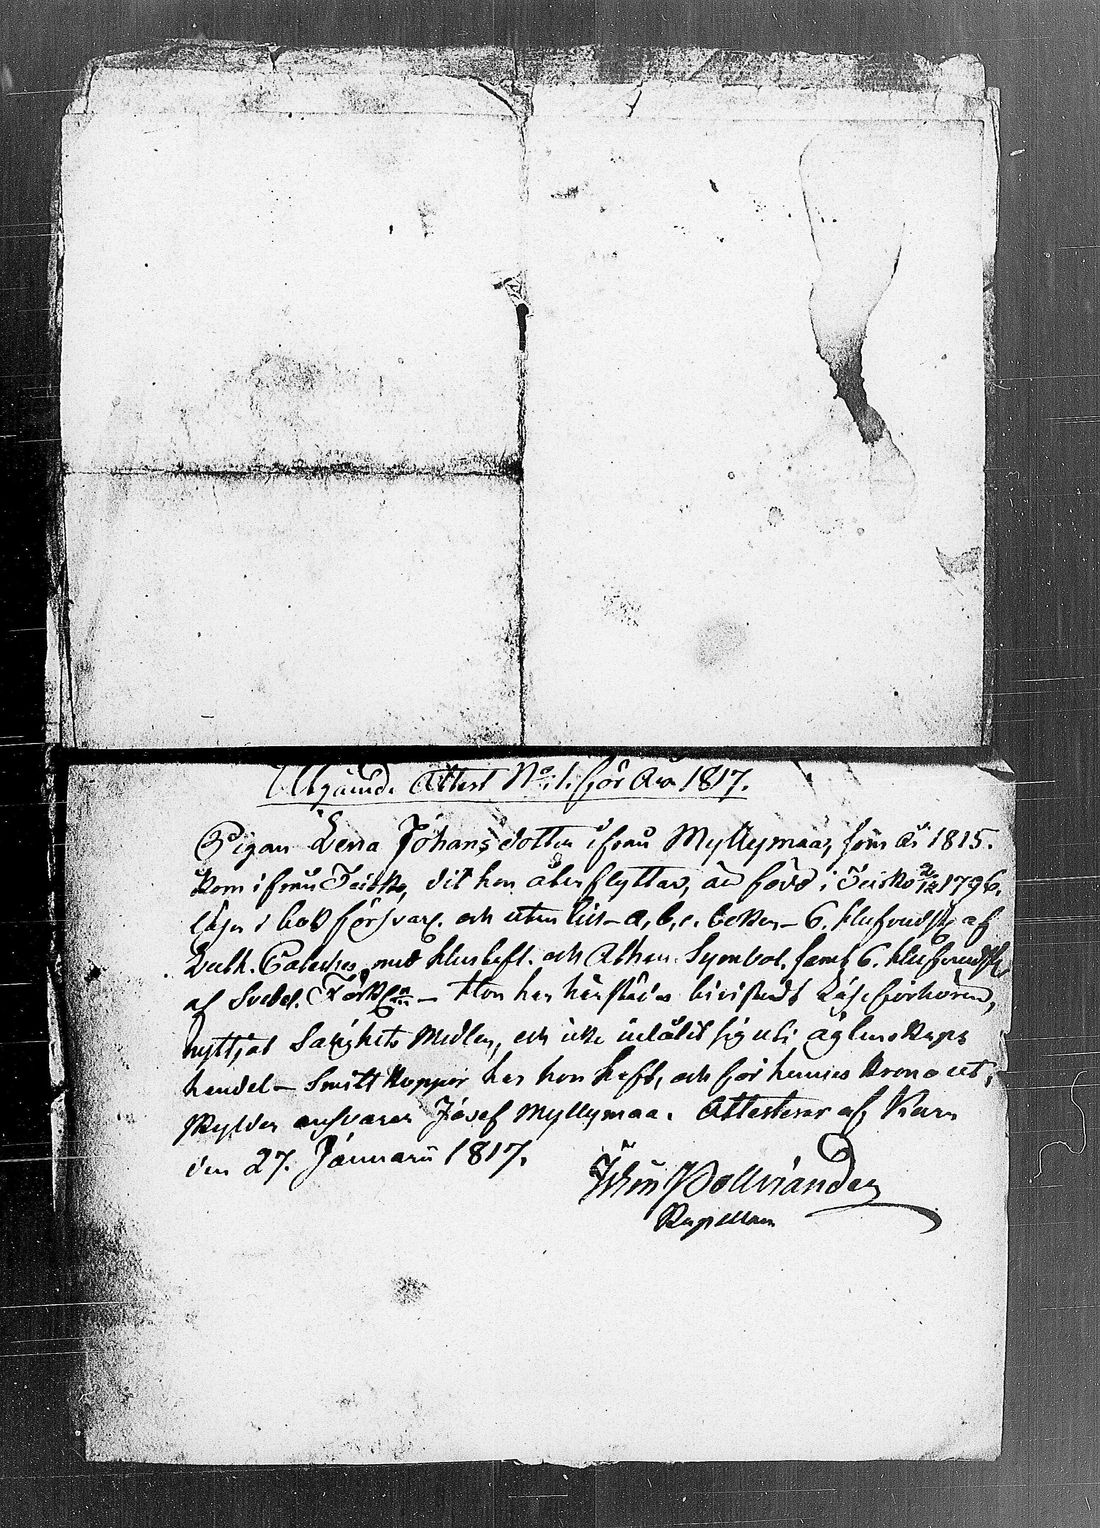 Utgående Attest No: 1. för Åro 1817.
Pigan Lena Johansdotter ifrån Myllymaa, som år 1815.
kom ifrån Teisko, dit hon återflyttar, är född i Teisko 1796,
läser i bok försvarl. och utan till a, b, c. boken 6. hufvudst. af
Luth. Cateches med hustafl. och Athan. Symbol. samt 6. hufvudst.
af Svebel. Förkl. – Hon har härstädes bivistat Läseförhören,
nyttjat Salighets Medlen, och icke inlåtit sig uti ägtenskaps
handel – Smittkoppor har hon haft, och för hennes Krono ut,
skylder ansvarar Josef Myllymaa. Attesterar af Kuru
den 27. Januarii 1817.
Pollviander
Kapellan